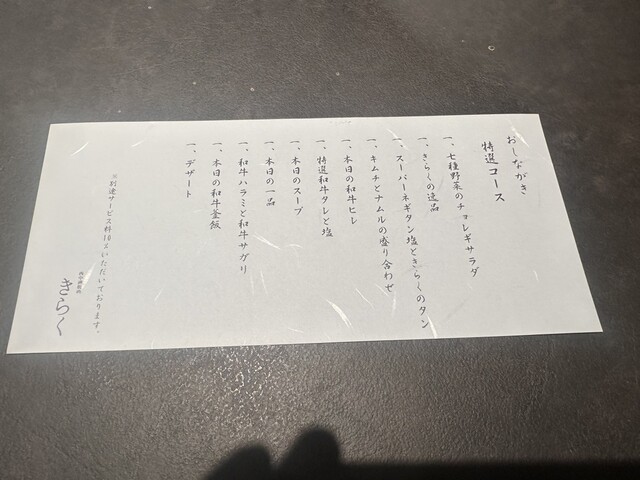 おしながき
特選コース
一、七種野菜のチョレギサラダ
一、きらくの逸品
一、スーパーネギタン塩ときらくのタン
一、キムチとナムルの盛り合わせ
一、本日の和牛ヒレ
一、特選和牛タレと塩
一、本日のスープ
一、本日の一品
一、和牛ハラミと和牛サガリ
一、本日の和牛釜飯
一、デザート
※別途サービス料10%いただいております。
きらく